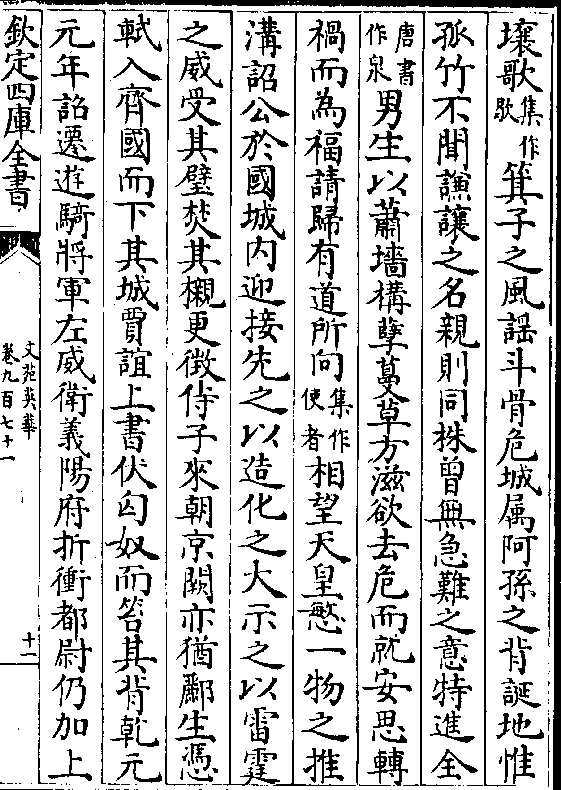 壤歌集作歇箕子之風謡斗骨危城属阿孫之背誕地惟
孤竹不聞謙讓之名親則同株曾無急難之意特進全
唐書作泉男生以蕭墻構孽蔓草方滋欲去危而就安思轉
禍而為福請歸有道所向集作使者相望天皇慜一物之推
溝詔公於國城内迎接先之以造化之大示之以雷霆
之威受其璧焚其櫬更徴侍子來朝京闕亦猶酈生憑
軾入齊國而下其城賈誼上書伏匈奴而笞其背乾元
元年詔遷遊騎將軍左威衛義陽府折衝都尉仍加上
欽定四庫全書
文苑英華
卷九百七十一
十一